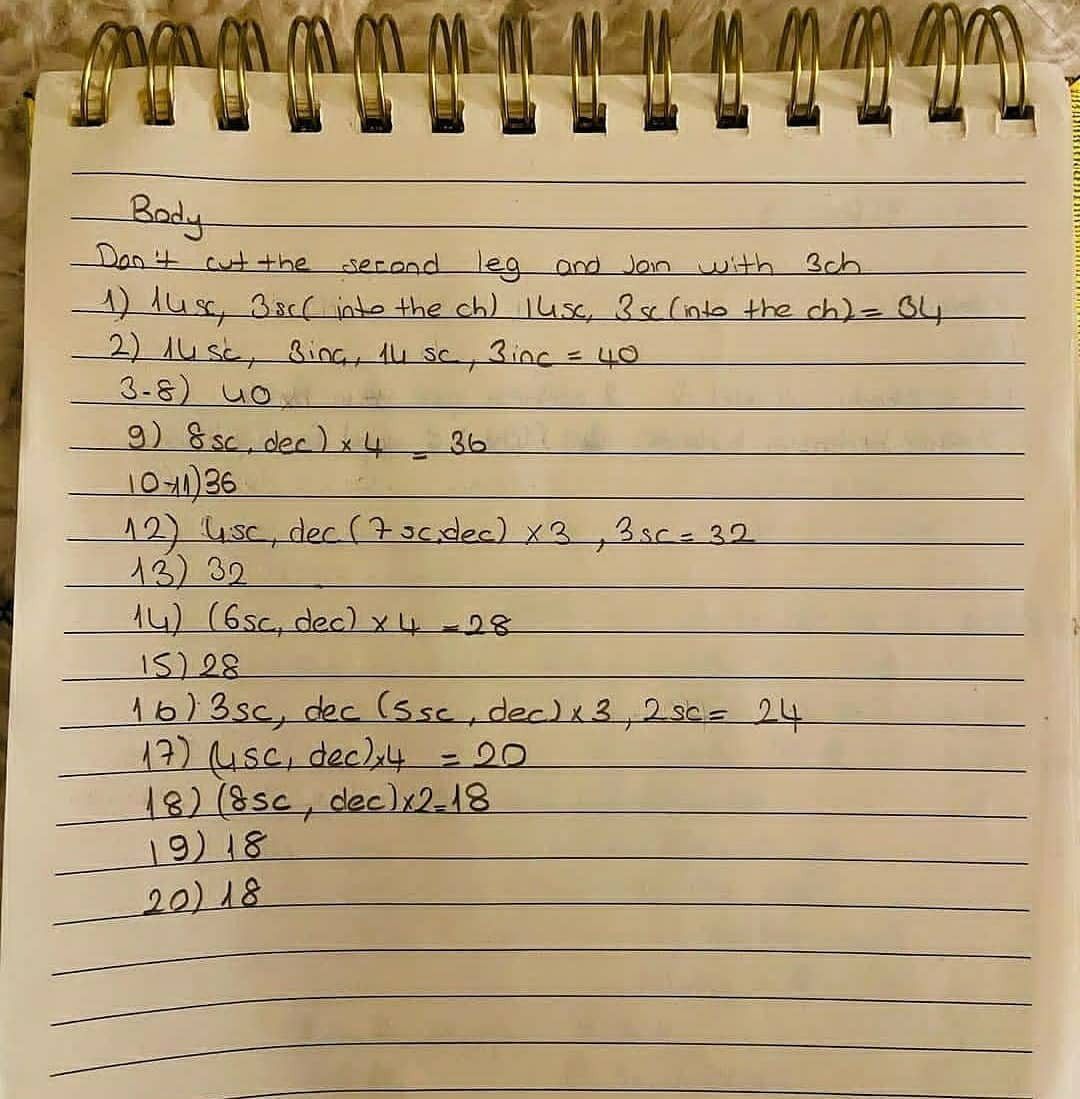 Body
Don't cut the second leg and Join with 3ch
1) 14sc, 3sc( into the ch) 14sc, 3sc (into the ch) = 34
2) 14 sc, 3inc, 14 sc, 3inc = 40
3-8) 40
9) 8sc, dec) x 4 = 36
10-11) 36
12) 4sc, dec (7sc,dec) x3 , 3sc = 32
13) 32
14) (6sc, dec) x 4 = 28
15) 28
16) 3sc, dec (5sc, dec) x 3, 2sc = 24
17) (4sc, dec)x4 = 20
18) (8sc, dec)x2=18
19) 18
20) 18